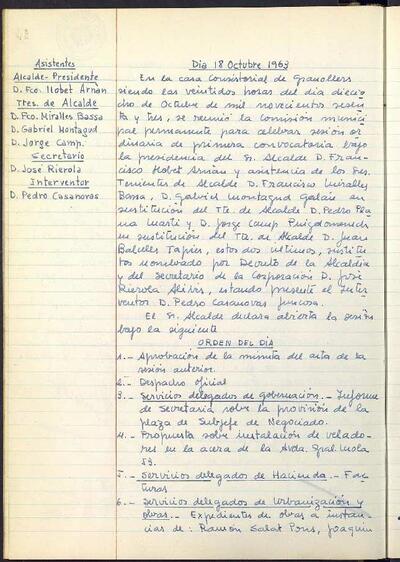 Asistentes
Alcalde-Presidente
D. Fco. Llobet Arnan
Ttes. de Alcalde
D. Fco. Miralles Bassa
D. Gabriel Montagud
D. Jorge Camp.
Secretario
D. José Rierola
Interventor
D. Pedro Casanovas
Dia 18 Octubre 1963
En la casa Consistorial de Granollers
siendo las veintidos horas del dia diecio
cho de Octubre de mil novecientos sesen
ta y tres, se reunió la Comisión munici
pal permanente para celebrar sesión or
dinaria de primera convocatoria bajo
la presidencia del Sr. Alcalde D. Fran-
cisco Llobet Arnán y asistencia de los Sres.
Tenientes de Alcalde D. Francisco Miralles
Bassa, D. Gabriel Montagud Galán en
sustitución del Tte. de Alcalde D. Pedro Pla
na Martí y D. Jorge Camp Puigdomenech
en sustitución del Tte. de Alcalde D. Juan
Balcells Tapies, estos dos ultimos, sustitu
tos nombrado por Decreto de la Alcaldia
y del Secretario de la Corporación D. José
Rierola estando presente el Inter
ventor D. Pedro Casanovas
El Sr. Alcalde declara abierta la sesión
bajo la siguiente
ORDEN DEL DIA
1.- Aprobación de la minuta del acta de la
sesión anterior.
2.- Despacho oficial
3.- Servicios delegados de gobernación.- Informe
de Secretaria sobre la provisión de la
plaza de Subjefe de Negociado.
4.- Propuesta sobre instalación de velado-
res en la acera de la Avda. Gral. Mola
53.
5.- Servicios delegados de Hacienda.- Fac
turas
6.- Servicios delegados de Urbanización y
obras.- Expedientes de obras a instan
cias de: Ramón Salat Pons, Joaquin